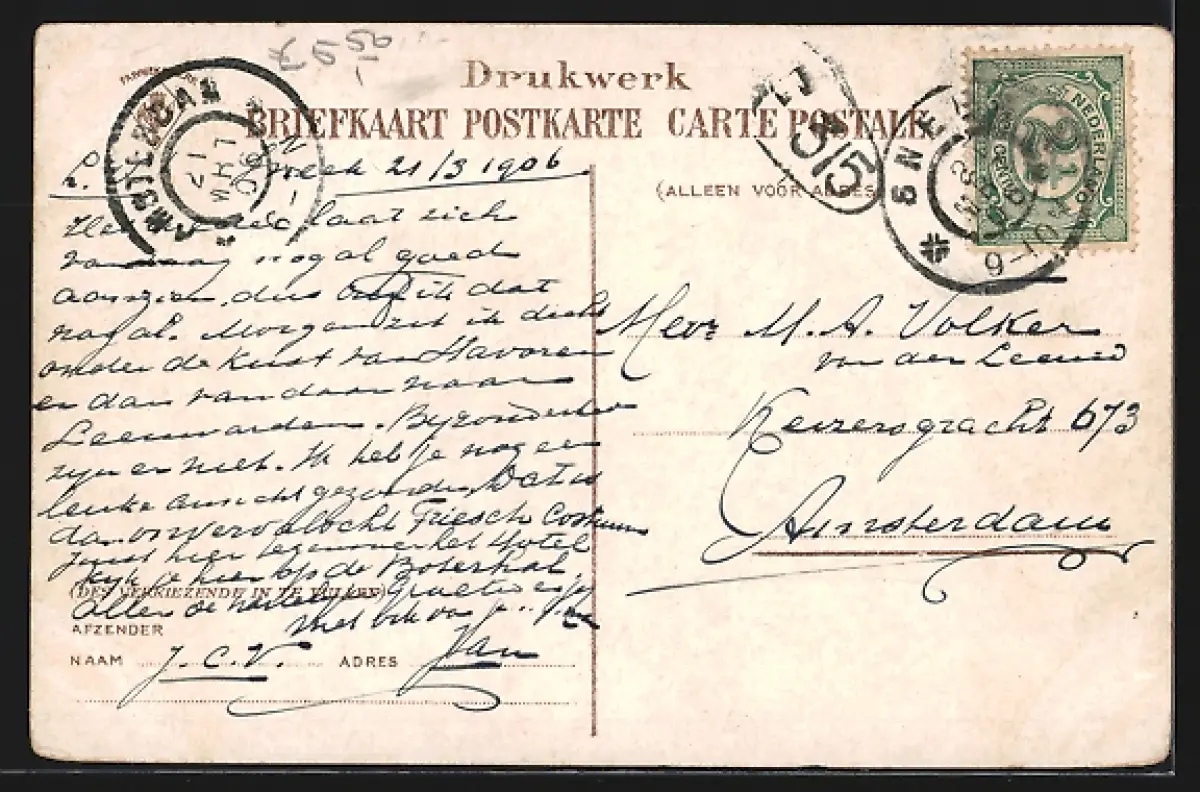 Drukwerk
BRIEFKAART POSTKARTE CARTE POSTALE
(ALLEEN VOOR ADRES
AMSTERDAM
SNEEK
9-10
3/5
NEDERLAND
2½
L. Sneek 21/3 1906.
Het laat zich
vandaag nogal goed
aanzien, dus dat
nogal. Morgen zit ik dicht
onder de kust van Stavoren
en dan van daar naar
Leeuwarden. Byzonderheden
zyn er niet. Ik heb je nog een
leuke ansicht gezonden. Dat is
dan onvervalscht Friesch Costuum
Juist hier tegenover het Hotel
kyk je hier op de Boterhal
(DES VERKIEZENDE IN TE VULLEN)
Allen de Groeten
Met van je
AFZENDER
NAAM J. C. V. ADRES Jan
Mevr M. A. Volker
van der Leeuw
Keizersgracht 673
Amsterdam